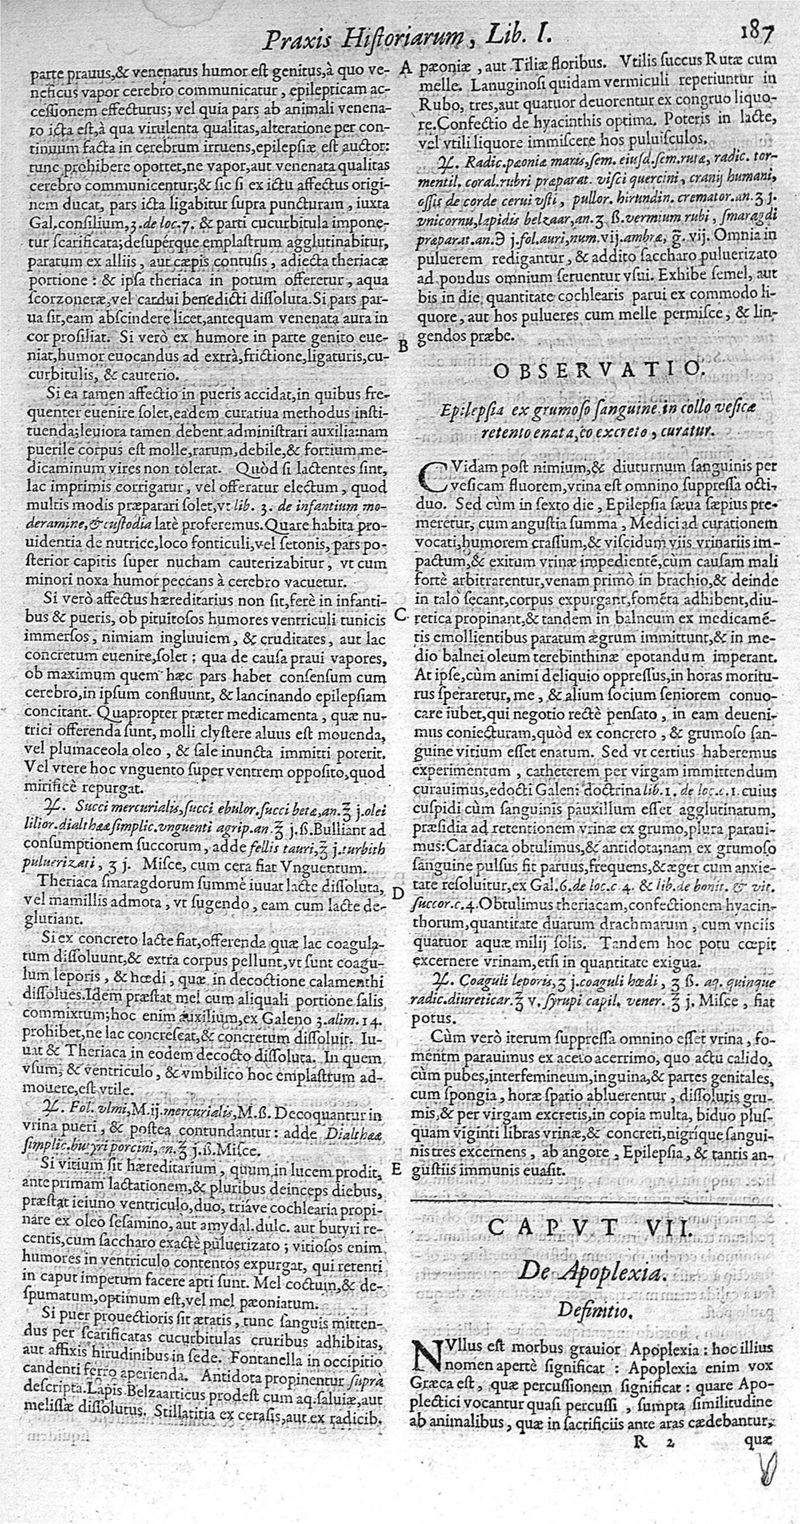 Praxis Hiſtoriarum, Lib. I.
187
parte prauus,& venenatus humor eſt genitus,à quo ve-
neficus vapor cerebro communicatur, epilepticam ac-
ceſſionem effecturus; vel quia pars ab animali venena-
to icta eſt,à qua virulenta qualitas,alteratione per con-
tinuum facta in cerebrum irruens,epilepſiæ eſt auctor:
tunc prohibere oportet,ne vapor,aut venenata qualitas
cerebro communicentur;& ſic ſi ex ictu affectus origi-
nem ducat, pars icta ligabitur ſupra puncturam, iuxta
Gal.conſilium,3.de loc.7. & parti cucurbitula impone-
tur ſcarificata;deſupérque emplaſtrum agglutinabitur,
paratum ex alliis, aut cæpis contuſis, adiecta theriacæ
portione : & ipſa theriaca in potum offeretur, aqua
ſcorzoneræ,vel cardui benedicti diſſoluta.Si pars par-
ua ſit,eam abſcindere licet,antequam venenata aura in
cor proſiliat. Si verò ex humore in parte genito eue-
niat,humor euocandus ad extrà,frictione,ligaturis,cu-
curbitulis, & cauterio.
Si ea tamen affectio in pueris accidat,in quibus fre-
quenter euenire ſolet,eadem curatiua methodus inſti-
tuenda;leuiora tamen debent adminiſtrari auxilia:nam
puerile corpus eſt molle,rarum,debile,& fortium me-
dicaminum vires non tolerat. Quòd ſi lactentes ſint,
lac imprimis corrigatur, vel offeratur electum, quod
multis modis præparari ſolet,vt lib. 3. de infantium mo-
deramine,& cuſtodia latè proferemus.Quare habita pro-
uidentia de nutrice,loco fonticuli,vel ſetonis, pars po-
ſterior capitis ſuper nucham cauterizabitur, vt cum
minori noxa humor peccans à cerebro vacuetur.
Si verò affectus hæreditarius non ſit,ferè in infanti-
bus & pueris, ob pituitoſos humores ventriculi tunicis
immerſos, nimiam ingluuiem, & cruditates, aut lac
concretum euenire,ſolet ; qua de cauſa praui vapores,
ob maximum quem hæc pars habet conſenſum cum
cerebro,in ipſum confluunt, & lancinando epilepſiam
concitant. Quapropter præter medicamenta, quæ nu-
trici offerenda ſunt, molli clyſtere aluus eſt mouenda,
vel plumaceola oleo, & ſale inuncta immitti poterit.
Vel vtere hoc vnguento ſuper ventrem oppoſito,quod
mirificè repurgat.
℞. Succi mercurialis,ſucci ebulor.ſucci betæ,an.℥ j.olei
lilior.dialthææ ſimplic.vnguenti agrip.an.℥ j.ß.Bulliant ad
conſumptionem ſuccorum, adde fellis tauri,℥ j.turbith
puluerizati, ʒ j. Miſce, cum cera fiat Vnguentum.
Theriaca ſmaragdorum ſummè iuuat lacte diſſoluta,
vel mamillis admota, vt ſugendo, eam cum lacte de-
glutiant.
Si ex concreto lacte fiat,offerenda quæ lac coagula-
tum diſſoluunt,& extra corpus pellunt,vt ſunt coagu-
lum leporis, & hœdi, quæ in decoctione calamenthi
diſſolues.Idem præſtat mel cum aliquali portione ſalis
commixtum;hoc enim auxilium,ex Galeno 3.alim. 14.
prohibet,ne lac concreſcat,& concretum diſſoluit. Iu-
uat & Theriaca in eodem decocto diſſoluta. In quem
vſum, & ventriculo, & vmbilico hoc emplaſtrum ad-
mouere,eſt vtile.
℞. Fol. vlmi,M.ij.mercurialis,M.ß. Decoquantur in
vrina pueri, & poſtea contundantur: adde Dialthææ
ſimplic.butyri porcini,an.℥ j.ß.Miſce.
Si vitium ſit hæreditarium, quum in lucem prodit,
ante primam lactationem,& pluribus deinceps diebus,
præſtat ieiuno ventriculo,duo, triáve cochlearia propi-
nare ex oleo ſeſamino, aut amydal.dulc. aut butyri re-
centis,cum ſaccharo exactè puluerizato ; vitioſos enim
humores in ventriculo contentos expurgat, qui retenti
in caput impetum facere apti ſunt. Mel coctum,& de-
ſpumatum,optimum eſt,vel mel pæoniatum.
Si puer prouectioris ſit ætatis, tunc ſanguis mitten-
dus per ſcarificatas cucurbitulas cruribus adhibitas,
aut affixis hirudinibus in ſede. Fontanella in occipitio
candenti ferro aperienda. Antidota propinentur ſupra
deſcripta.Lapis Belzaarticus prodeſt cum aq.ſaluiæ,aut
meliſſæ diſſolutus. Stillatitia ex ceraſis,aut ex radicib.
A
B
C
D
E
pæoniæ, aut Tiliæ floribus. Vtilis ſuccus Rutæ cum
melle. Lanuginoſi quidam vermiculi reperiuntur in
Rubo, tres,aut quatuor deuorentur ex congruo liquo-
re.Confectio de hyacinthis optima. Poteris in lacte,
vel vtili liquore immiſcere hos puluiſculos.
℞. Radic.pæoniæ maris,ſem.eiuſd.ſem.rutæ, radic. tor-
mentil. coral.rubri præparat. viſci quercini, cranij humani,
oſſis de corde cerui vſti, pullor. hirundin. cremator.an.ʒ j.
vnicornu,lapidis belzaar,an.ʒ ß.vermium rubi, ſmaragdi
præparat.an.℈ j.fol.auri,num.vij.ambræ, g̃. vij. Omnia in
puluerem redigantur, & addito ſaccharo puluerizato
ad pondus omnium ſeruentur vſui. Exhibe ſemel, aut
bis in die, quantitate cochlearis parui ex commodo li-
quore, aut hos pulueres cum melle permiſce, & lin-
gendos præbe.
OBSERVATIO.
Epilepſia ex grumoſo ſanguine in collo veſicæ
retento enata, eo excreto, curatur.
CVidam poſt nimium,& diuturnum ſanguinis per
veſicam fluorem,vrina eſt omnino ſuppreſſa octi-
duo. Sed cùm in ſexto die, Epilepſia ſæua ſæpius pre-
meretur, cum anguſtia ſumma, Medici ad curationem
vocati,humorem craſſum,& viſcidum viis vrinariis im-
pactum,& exitum vrinæ impedientẽ,cùm cauſam mali
fortè arbitrarentur,venam primò in brachio,& deinde
in talo ſecant,corpus expurgant,fomẽta adhibent,diu-
retica propinant,& tandem in balneum ex medicamẽ-
tis emollientibus paratum ægrum immittunt,& in me-
dio balnei oleum terebinthinæ epotandum imperant.
At ipſe,cùm animi deliquio oppreſſus,in horas moritu-
rus ſperaretur, me, & alium ſocium ſeniorem conuo-
care iubet,qui negotio rectè penſato, in eam deueni-
mus coniecturam,quòd ex concreto, & grumoſo ſan-
guine vitium eſſet enatum. Sed vt certius haberemus
experimentum, catheterem per virgam immittendum
curauimus,edocti Galeni doctrina lib.1. de loc.c.1.cuius
cuſpidi cùm ſanguinis pauxillum eſſet agglutinatum,
præſidia ad retentionem vrinæ ex grumo,plura paraui-
mus:Cardiaca obtulimus,& antidota;nam ex grumoſo
ſanguine pulſus fit paruus,frequens,& æger cum anxie-
tate reſoluitur,ex Gal.6.de loc.c 4. & lib.de bonit. & vit.
ſuccor.c.4.Obtulimus theriacam,confectionem hyacin-
thorum,quantitate duarum drachmarum, cum vnciis
quatuor aquæ milij ſolis. Tandem hoc potu cœpit
excernere vrinam,etſi in quantitate exigua.
℞. Coaguli leporis,ʒ j.coaguli hœdi, ʒ ß. aq. quinque
radic.diureticar.℥ v. ſyrupi capil. vener. ℥ j. Miſce, fiat
potus.
Cùm verò iterum ſuppreſſa omnino eſſet vrina, fo-
mentm parauimus ex aceto acerrimo, quo actu calido,
cùm pubes,interfemineum,inguina,& partes genitales,
cum ſpongia, horæ ſpatio abluerentur, diſſolutis gru-
mis,& per virgam excretis,in copia multa, biduo pluſ-
quam viginti libras vrinæ,& concreti,nigríque ſangui-
nis tres excernens, ab angore, Epilepſia,& tantis an-
guſtiis immunis euaſit.
CAPVT VII.
De Apoplexia.
Definitio.
NVllus eſt morbus grauior Apoplexia : hoc illius
nomen apertè ſignificat : Apoplexia enim vox
Græca eſt, quæ percuſſionem ſignificat: quare Apo-
plectici vocantur quaſi percuſſi, ſumpta ſimilitudine
ab animalibus, quæ in ſacrificiis ante aras cædebantur,
R 2
quæ